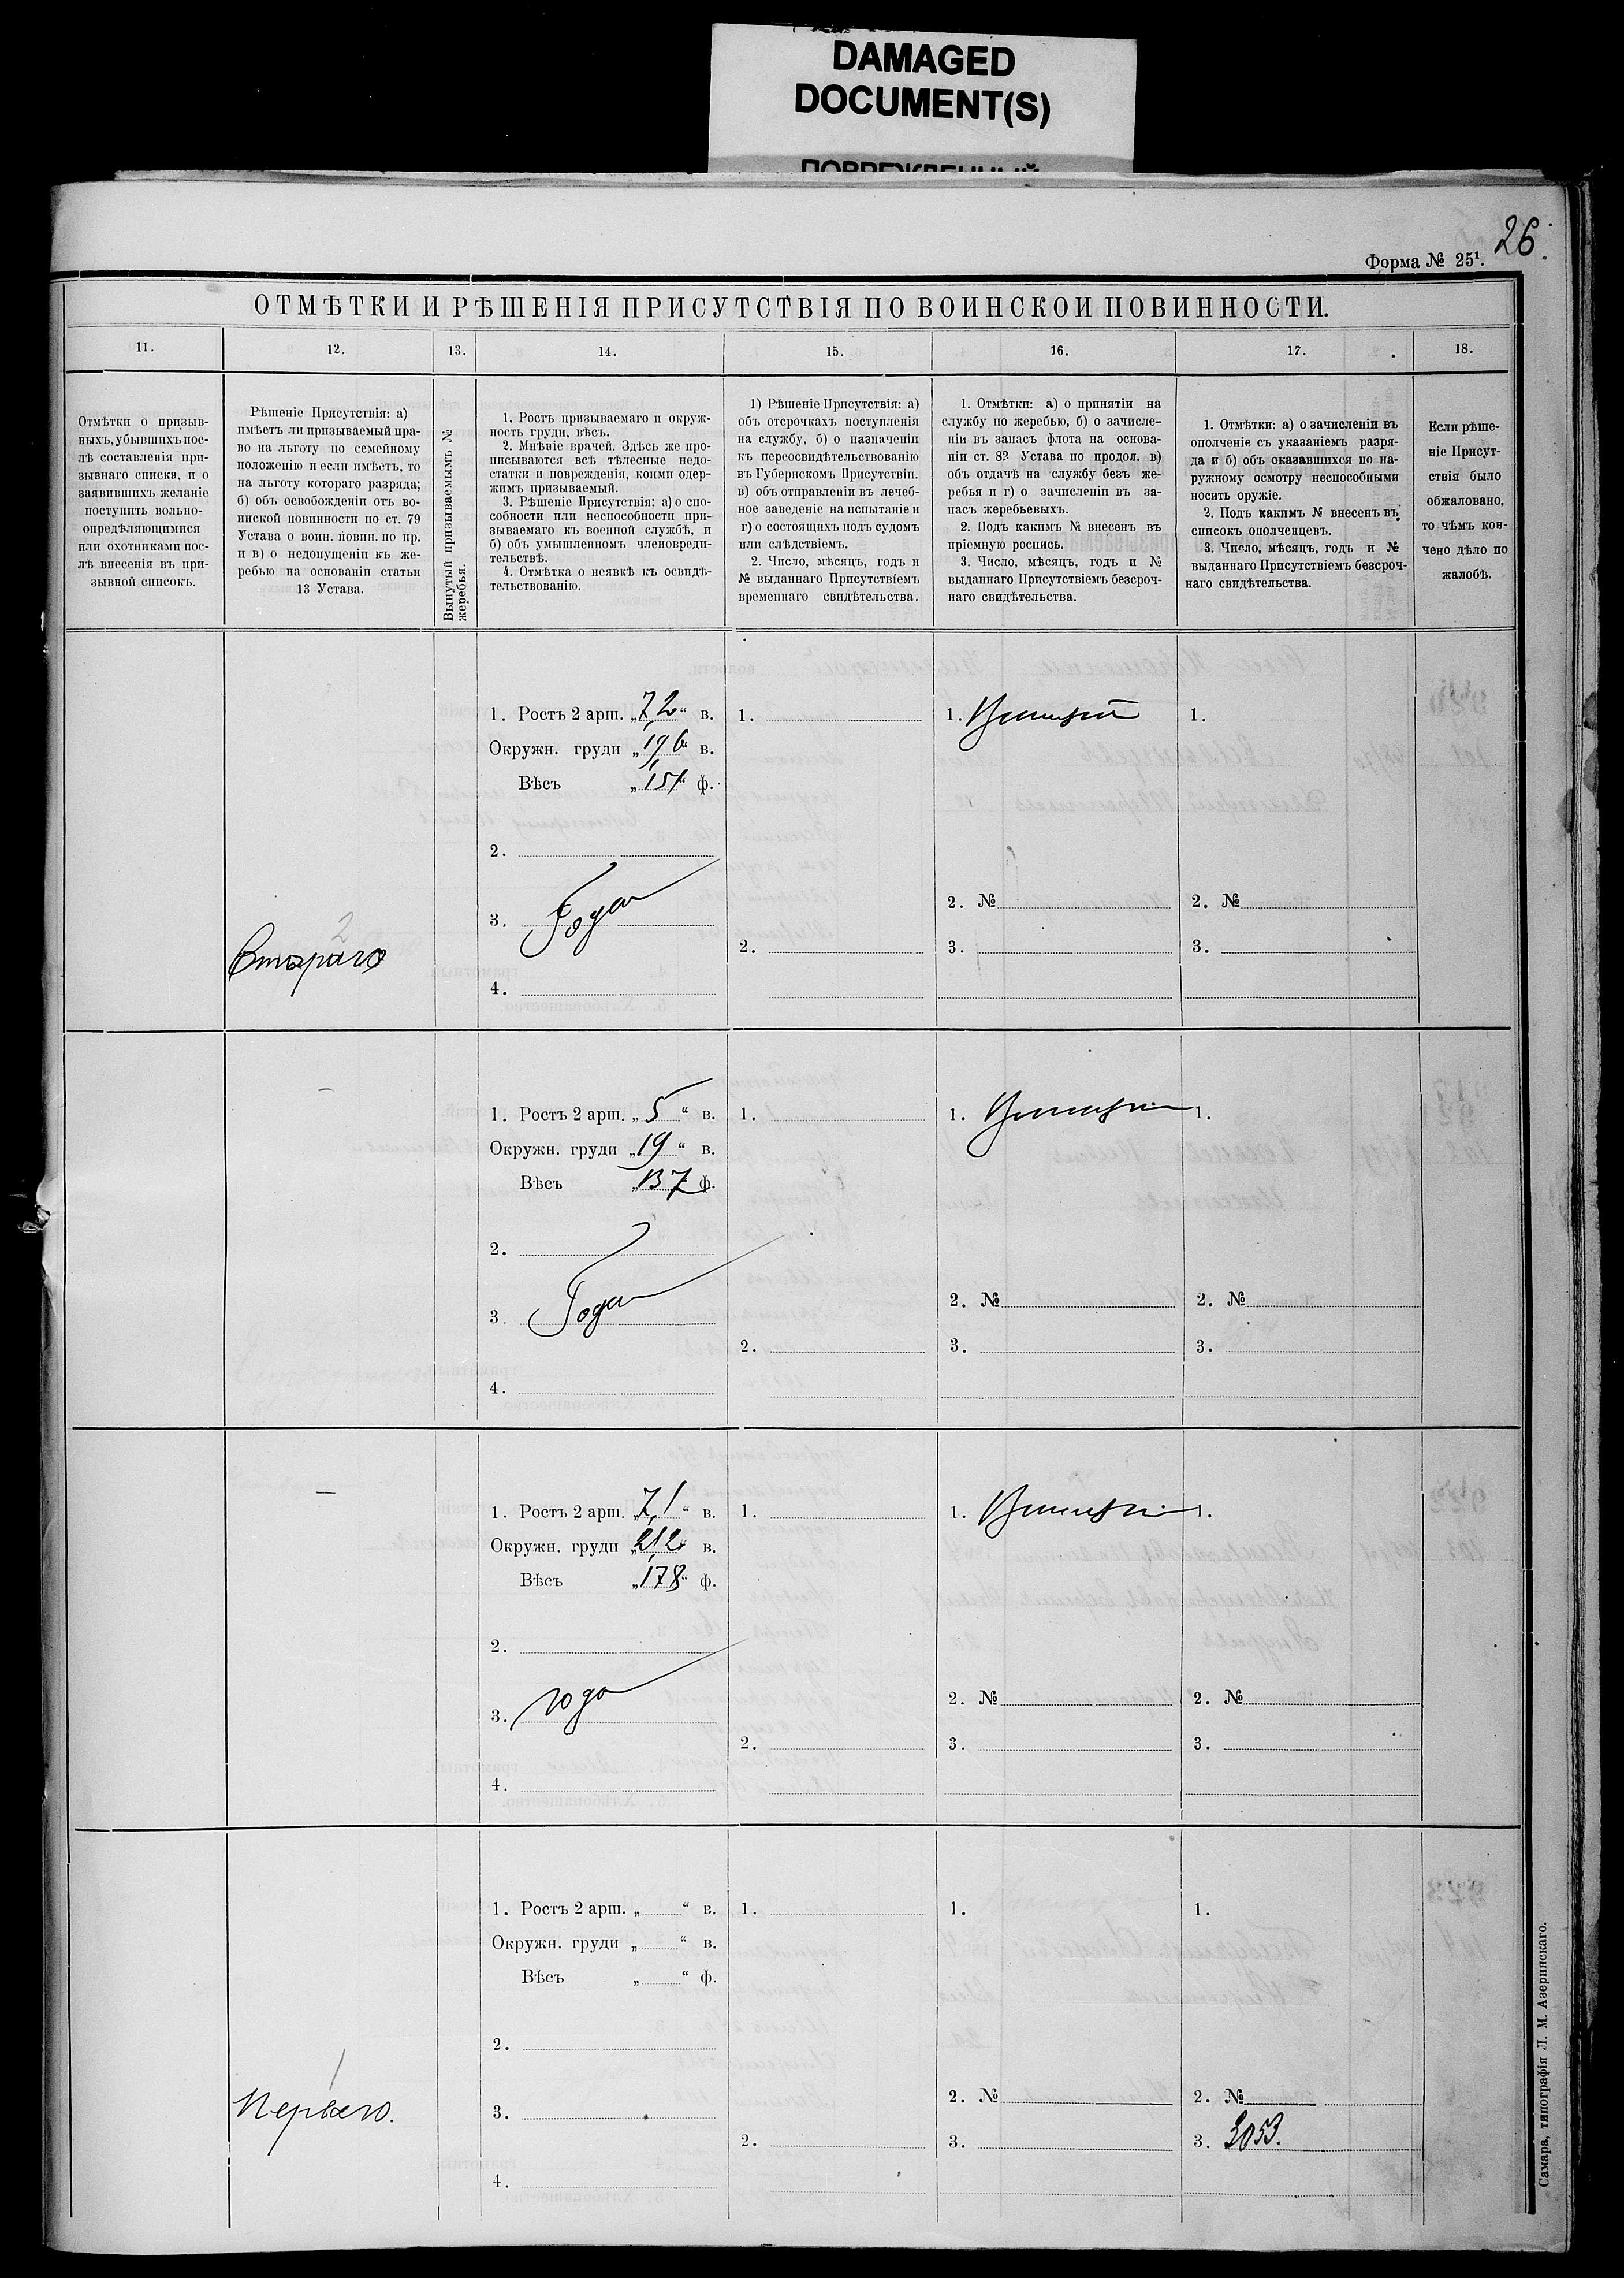 DAMAGED
DOCUMENT(S)
ПОВРЕЖДЕННЫЙ
26.
Форма № 25¹.
ОТМѢТКИ И РѢШЕНІЯ ПРИСУТСТВІЯ ПО ВОИНСКОИ ПОВИННОСТИ.
11. 12. 13. 14. 15. 16. 17. 18.
Отмѣтки о призыв-
ныхъ, убывшихъ пос-
лѣ составленія при-
зывнаго списка, и о
заявившихъ желаніе
поступить вольно-
опредѣляющимися
или охотниками пос-
лѣ внесенія въ при-
зывной списокъ.
Рѣшеніе Присутствія: а)
имѣетъ ли призываемый пра-
во на льготу по семейному
положенію и если имѣетъ, то
на льготу котораго разряда;
б) объ освобожденіи отъ во-
инской повинности по ст. 79
Устава о воин. повин. по пр.
и в) о недопущеніи къ же-
ребью на основаніи статьи
13 Устава.
Вынутый призываемымъ №
жеребья.
1. Ростъ призываемаго и окруж-
ность груди, вѣсъ.
2. Мнѣніе врачей. Здѣсь же про-
писываются всѣ тѣлесные недо-
статки и поврежденія, коими одер-
жимъ призываемый.
3. Рѣшеніе Присутствія; а) о спо-
собности или неспособности при-
зываемаго къ военной службѣ, и
б) объ умышленномъ членовреди-
тельствѣ.
4. Отмѣтка о неявкѣ къ освидѣ-
тельствованію.
1) Рѣшеніе Присутствія: а)
объ отсрочкахъ поступленія
на службу, б) о назначеніи
къ переосвидѣтельствованію
въ Губернскомъ Присутствіи.
в) объ отправленіи въ лечеб-
ное заведеніе на испытаніе и
г) о состоящихъ подъ судомъ
или слѣдствіемъ.
2. Число, мѣсяцъ, годъ и
№ выданнаго Присутствіемъ
временнаго свидѣтельства.
1. Отмѣтки: а) о принятіи на
службу по жеребью, б) о зачисле-
ніи въ запасъ флота на основа-
ніи ст. 82 Устава по продол. в)
объ отдачѣ на службу безъ же-
ребья и г) о зачисленіи въ за-
пасъ жеребьевыхъ.
2. Подъ какимъ № внесенъ въ
пріемную роспись.
3. Число, мѣсяцъ, годъ и №
выданнаго Присутствіемъ безсроч-
наго свидѣтельства.
1. Отмѣтки: а) о зачисленіи въ
ополченіе съ указаніемъ разря-
да и б) объ оказавшихся по на-
ружному осмотру неспособными
носить оружіе.
2. Подъ какимъ № внесенъ въ
списокъ ополченцевъ.
3. Число, мѣсяцъ, годъ и №
выданнаго Присутствіемъ безсроч-
наго свидѣтельства.
Если рѣше-
ніе Присут-
ствія было
обжаловано,
то чѣмъ кон-
чено дѣло по
жалобѣ.
1. Ростъ 2 арш. „7,2“ в. 1. 1. 1.
Окружн. груди „19,6“ в.
Вѣсъ „151“ ф.
2.
3. Годен 2. № 2. №
2
Втораго
2. 3. 3.
4.
1. Ростъ 2 арш. „5“ в. 1. 1. 1.
Окружн. груди „19“ в.
Вѣсъ „137“ ф.
2.
3. Годен 2. № 2. №
2. 3. 3.
4.
1. Ростъ 2 арш. „7,1“ в. 1. 1. 1.
Окружн. груди „21,2“ в.
Вѣсъ „178“ ф.
2.
3. годен 2. № 2. №
2. 3. 3.
4.
1. Ростъ 2 арш. „ “ в. 1. 1. 1.
Окружн. груди „ “ в.
Вѣсъ „ “ ф.
2.
1
Перваго. 3. 2. № 2. №
2. 3. 3. 3053.
4.
Самара, типографія Л. М. Азеринскаго.